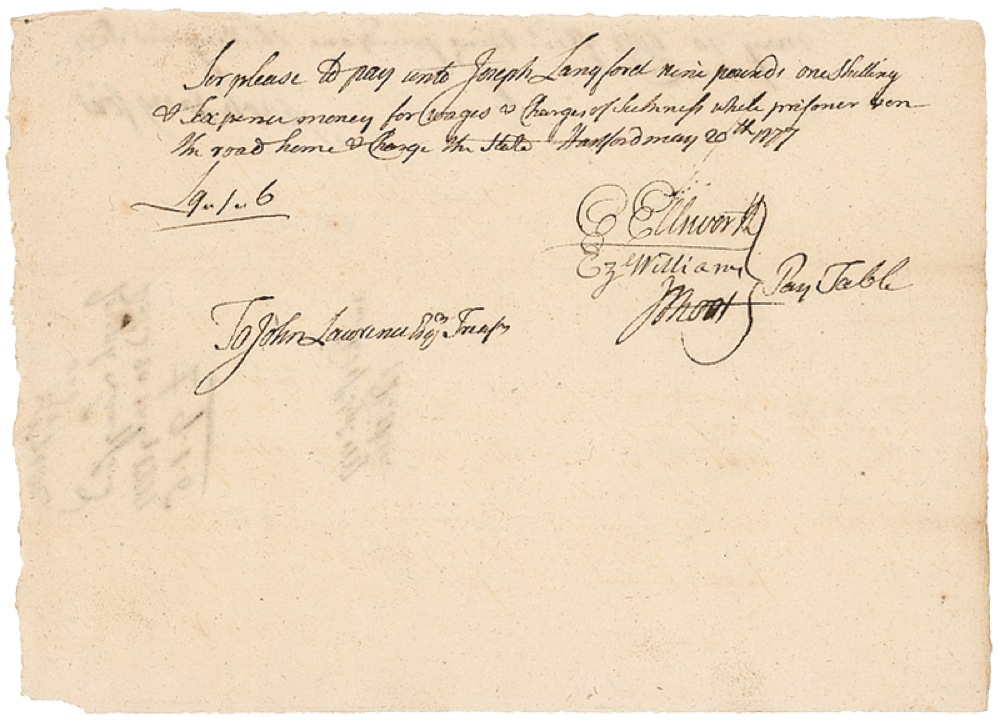 Sir please to pay unto Joseph Langford nine pounds one Shilling
& Sixpence money for wages & Charges of Sickness while prisoner & on
the road home & Charge the State Hartford may 20th 1777
£9.1.6
E Ellsworth
Eze Williams
J Root
Pay Table
To John Lawrence Esqr Treasr